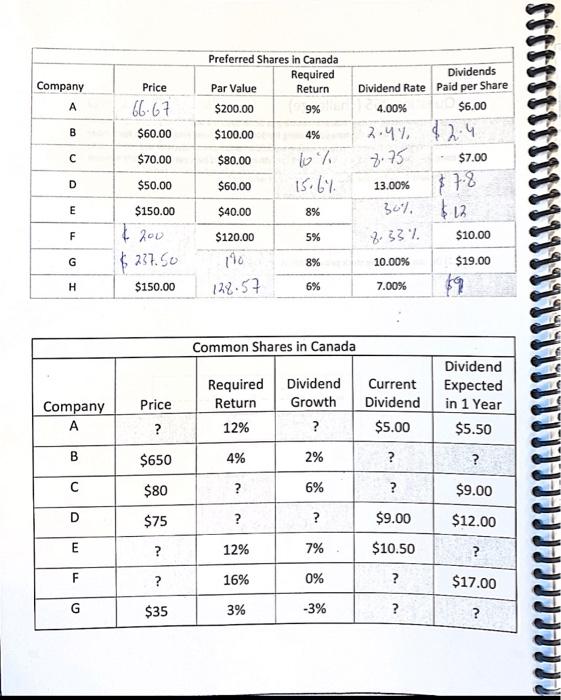 Preferred Shares in Canada
Company Price Par Value Required Return Dividend Rate Dividends Paid per Share
A 66.67 $200.00 9% 4.00% $6.00
B $60.00 $100.00 4% 2.4% $2.4
C $70.00 $80.00 10% 8.75 $7.00
D $50.00 $60.00 15.6% 13.00% $7.8
E $150.00 $40.00 8% 30% $12
F $200 $120.00 5% 8.33% $10.00
G $237.50 190 8% 10.00% $19.00
H $150.00 128.57 6% 7.00% $9
Common Shares in Canada
Company Price Required Return Dividend Growth Current Dividend Dividend Expected in 1 Year
A ? 12% ? $5.00 $5.50
B $650 4% 2% ? ?
C $80 ? 6% ? $9.00
D $75 ? ? $9.00 $12.00
E ? 12% 7% $10.50 ?
F ? 16% 0% ? $17.00
G $35 3% -3% ? ?